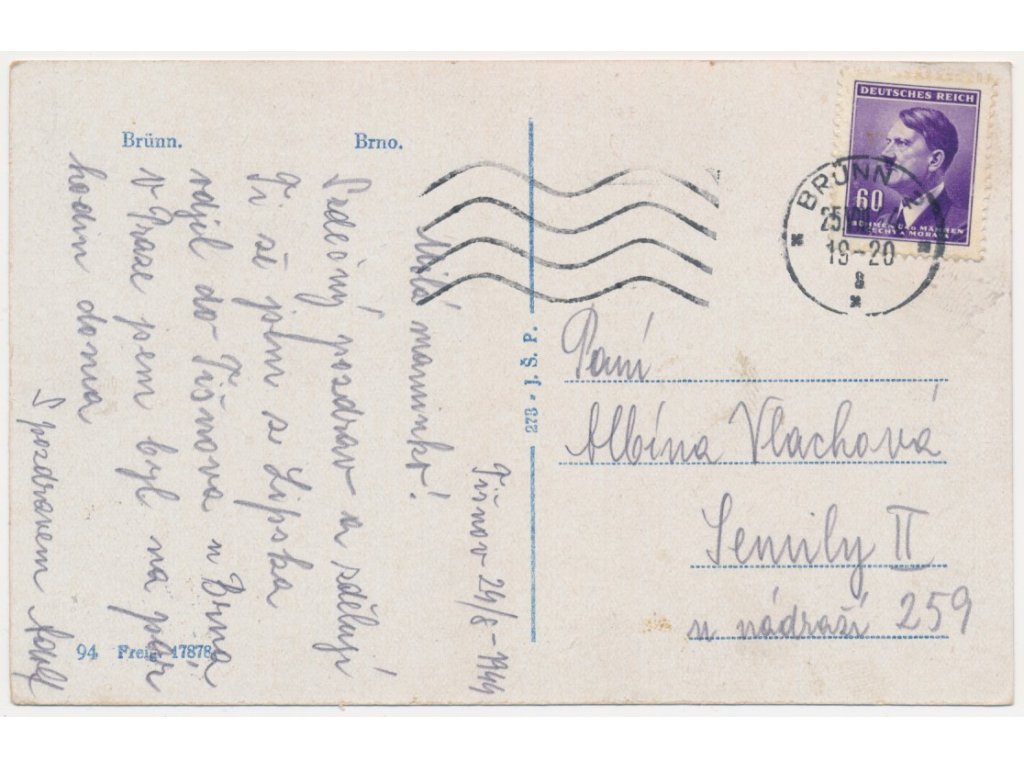 Brünn. Brno.
DEUTSCHES REICH
60
BÖHMEN UND MÄHREN
ČECHY A MORAVA
BRÜNN 2
25 VIII 4
19-20
8
Tišnov 24/8-1944
Milá maminko!
Srdečný pozdrav a sděluji
Ti že jsem se z Lipska
odjel do Tišnova u Brna
v Praze jsem byl na pár
hodin doma
S pozdravem
273 - J. Š. P.
Paní
Albína Vlachová
Semily II
u nádraží 259
94 Freig. 17878